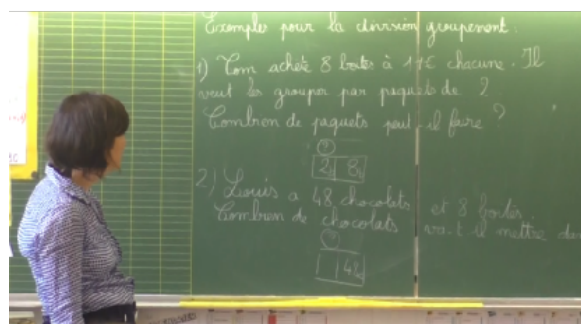 Exemples pour la division groupement.
1) Tom achète 8 boites à 11€ chacune. Il
veut les grouper par paquets de 2.
Combien de paquets peut-il faire ?
?
2 8
2) Louis a 48 chocolats et 8 boites.
Combien de chocolats va-t-il mettre dans
?
48